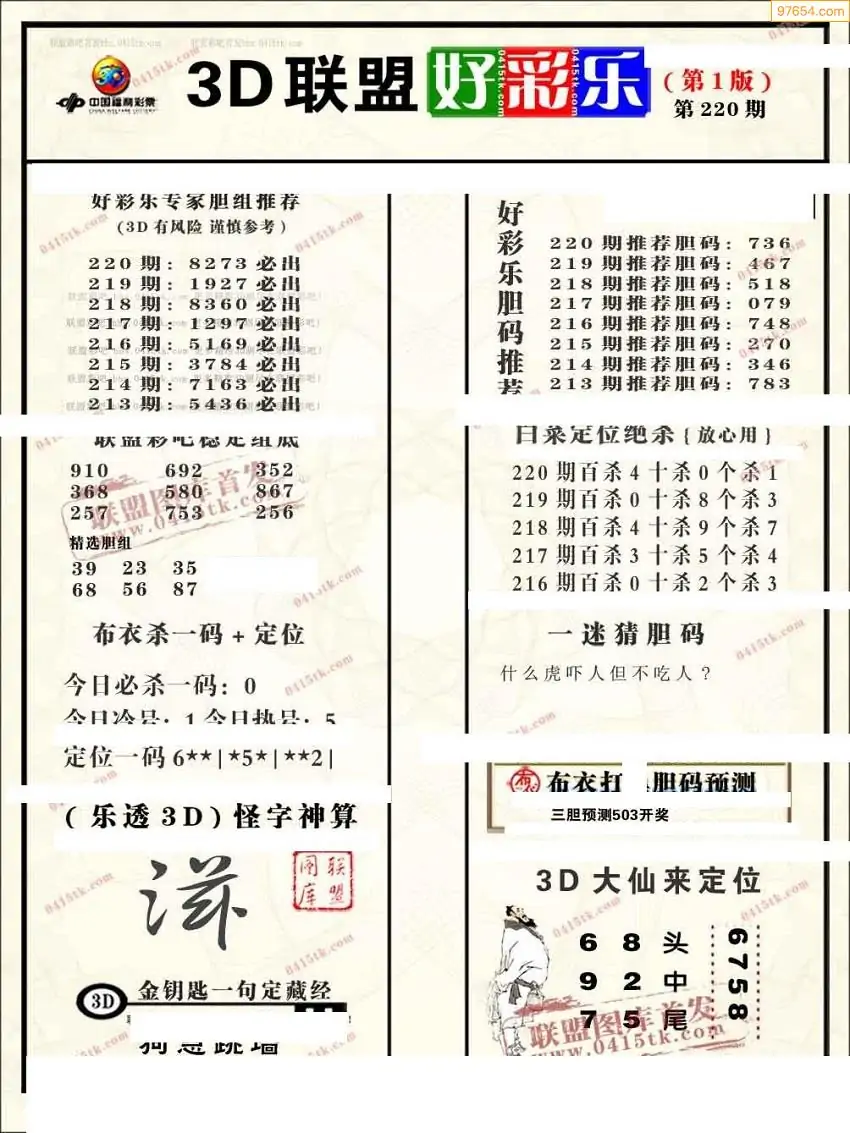 97654.com
中国福利彩票
CHINA WELFARE LOTTERY
3D联盟好彩乐
0415tk.com
(第1版)
第220期
好彩乐专家胆组推荐
(3D有风险 谨慎参考)
220期: 8273必出
219期: 1927必出
218期: 8360必出
217期: 1297必出
216期: 5169必出
215期: 3784必出
214期: 7163必出
213期: 5436必出
联盟彩吧稳定组底
910 692 352
368 580 867
257 753 256
精选胆组
39 23 35
68 56 87
布衣杀一码+定位
今日必杀一码: 0
今日冷号: 1 今日热号: 5
定位一码6**|*5*|**2|
(乐透3D)怪字神算
滋
联盟图库
3D
金钥匙一句定藏经
狗急跳墙
好彩乐胆码推荐
220期推荐胆码: 736
219期推荐胆码: 467
218期推荐胆码: 518
217期推荐胆码: 079
216期推荐胆码: 748
215期推荐胆码: 270
214期推荐胆码: 346
213期推荐胆码: 783
白菜定位绝杀{放心用}
220期百杀4十杀0个杀1
219期百杀0十杀8个杀3
218期百杀4十杀9个杀7
217期百杀3十杀5个杀4
216期百杀0十杀2个杀3
一迷猜胆码
什么虎吓人但不吃人?
布衣打 胆码预测
三胆预测503开奖
3D大仙来定位
6 8 头
9 2 中
7 5 尾
6758
联盟图库首发
www.0415tk.com